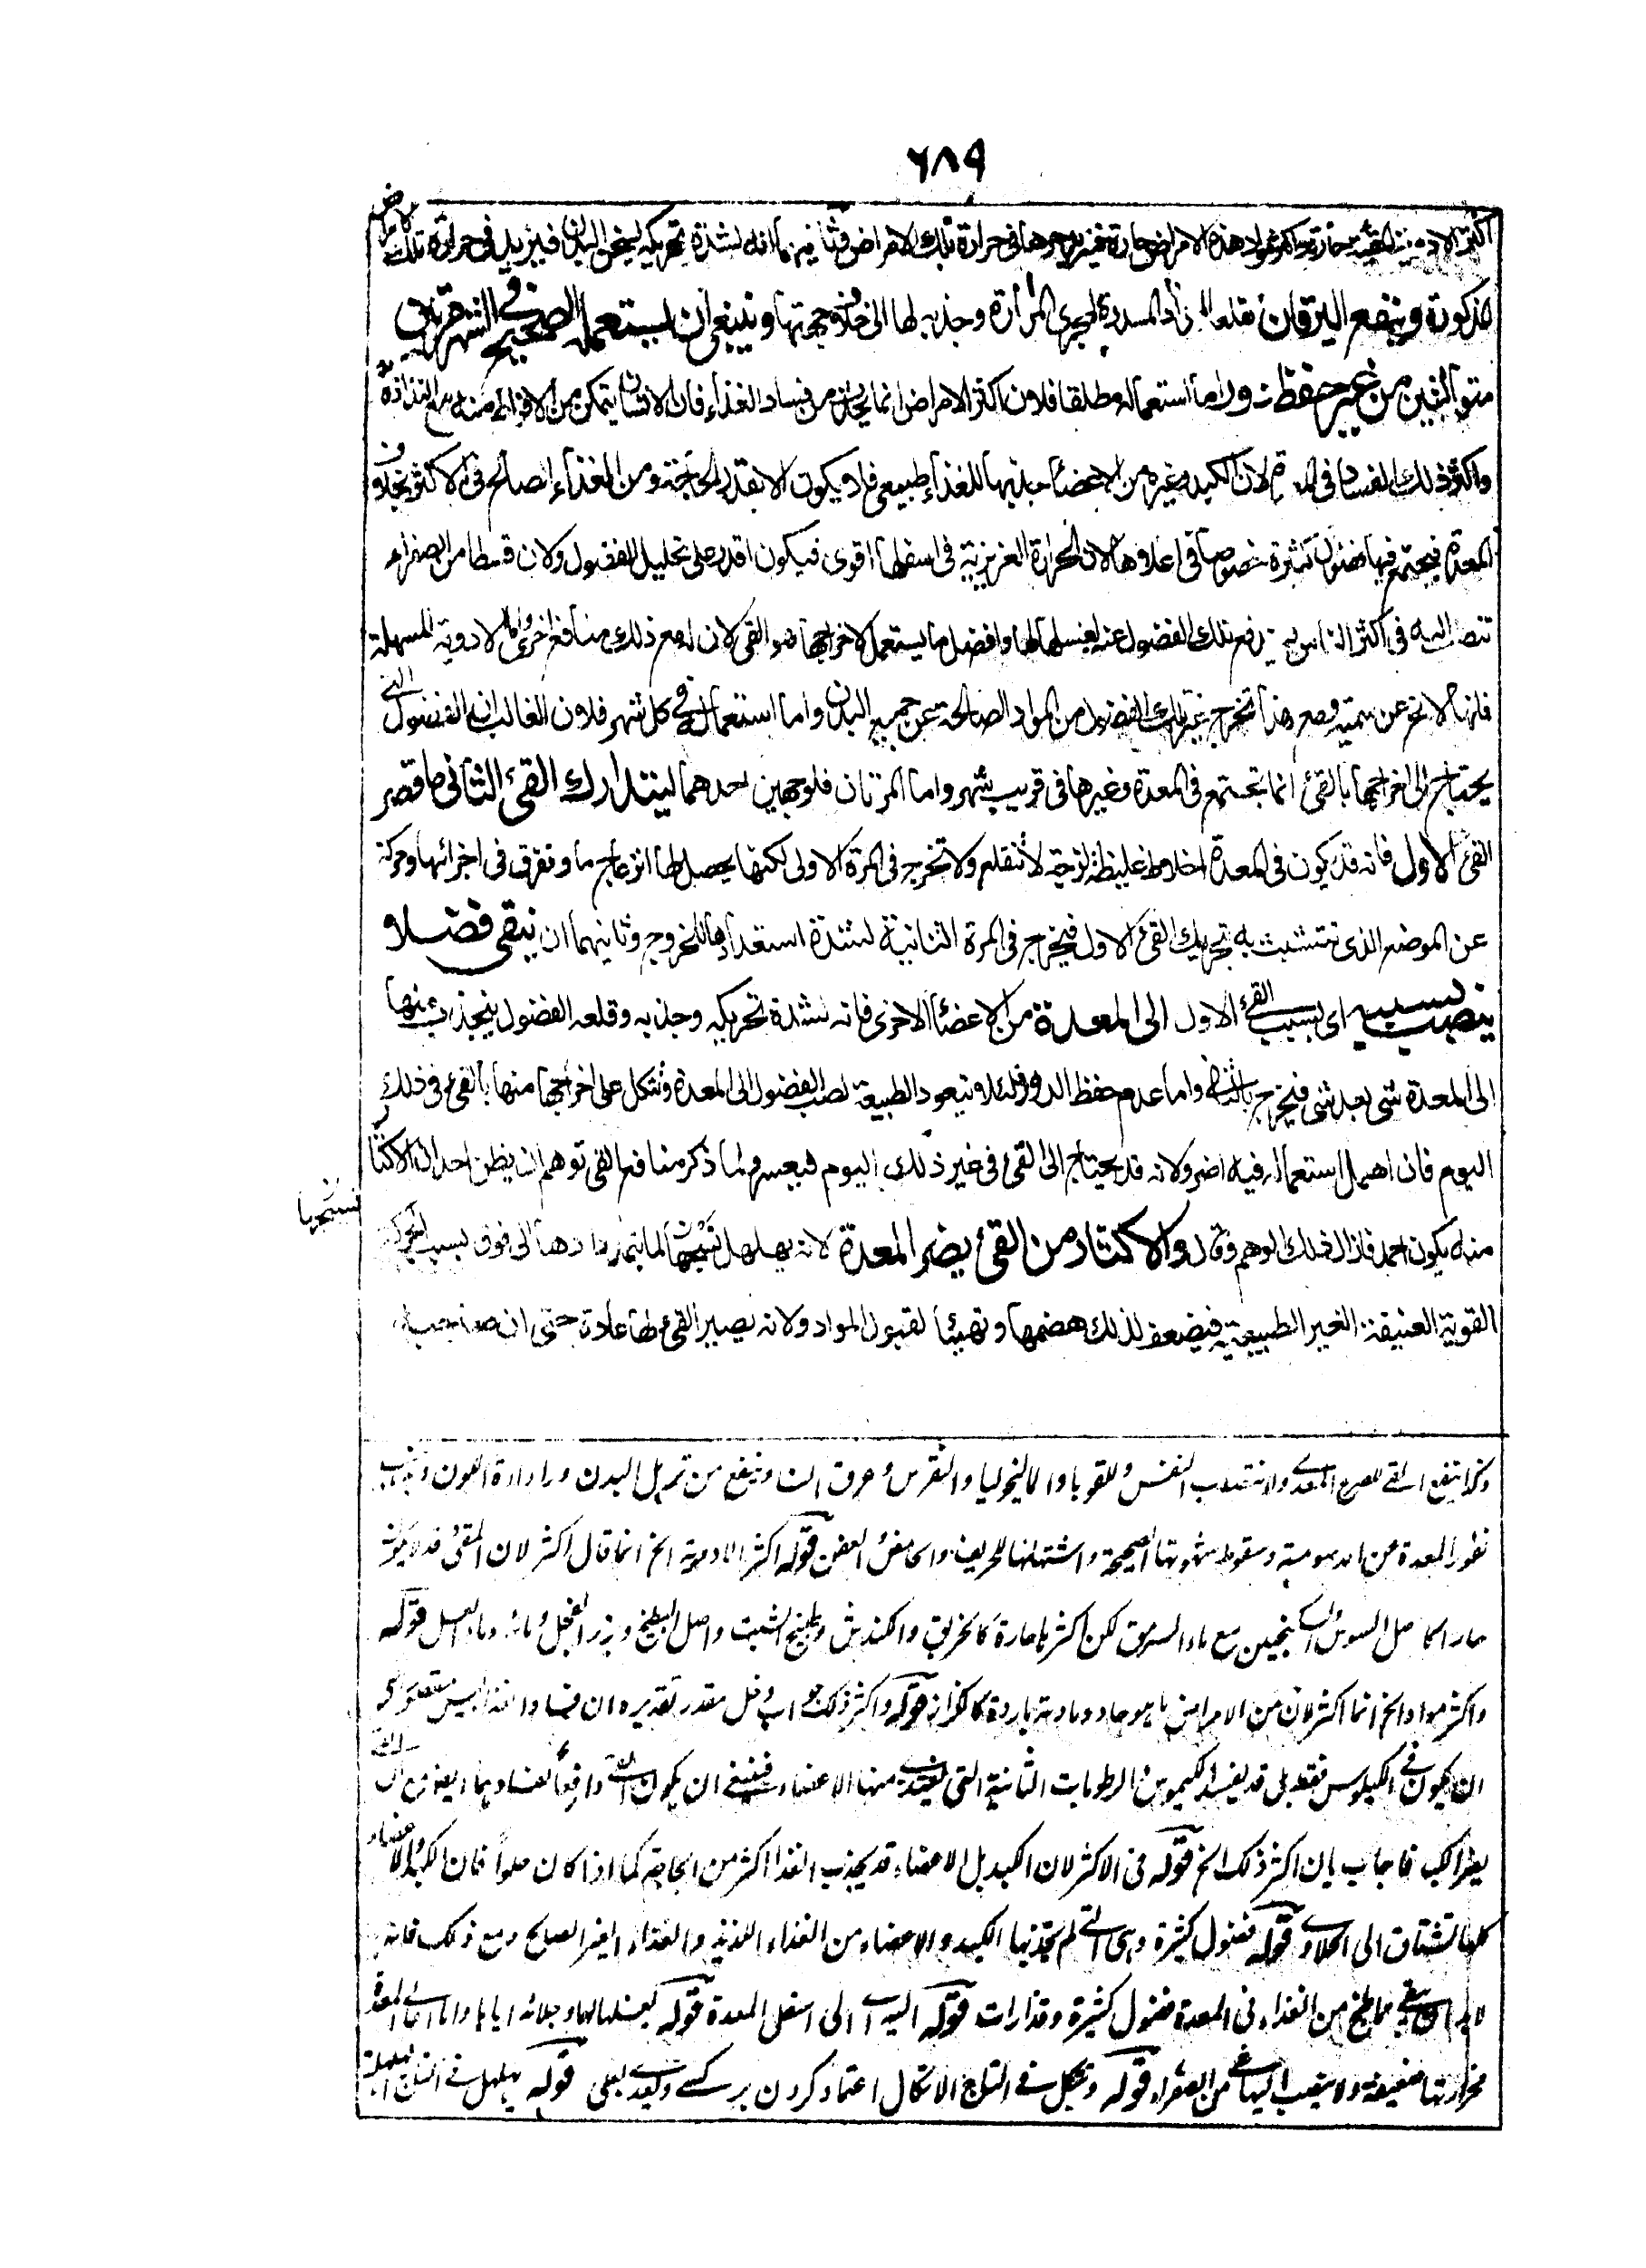 ٦٨٩
اكثر الادوية المقيئة حارة واكثر مواد هذه الامراض حارة فيزيد جوهرها فى حرارة تلك الامراض وثانيهما انه لشدة تحريكه يسخن البدن فيزيد فى حرارة تلك الامراض
المذكورة وينفع اليرقان بقلعه المادة المسددة لمجرى المرارة وجذبه لها الى خلاف جهتها وينبغى ان يستعمله الصحيح فى الشهر مرتين
متواليتين من غير حفظ دور اما استعماله مطلقا فلان اكثر الامراض انما يحدث من فساد الغذاء فان الانسان يتمكن من الافراط منه مع التذاذه
واكثر ذلك الفساد فى المعدة لان الكبد وغيره من الاعضاء جذبها للغذاء طبيعى فلا يكون الا بقدر الحاجة ومن الغذاء الصالح فى الاكثر بخلاف
المعدة فيجتمع فيها فضول كثيرة خصوصا فى اعلاها لان الحرارة الغريزية فى اسفلها اقوى فيكون اقدر على تحليل الفضول ولان قسطا من الصفراء
تنصب اليه فى اكثر الناس فيدفع تلك الفضول عنه لغسلها لها وافضل ما يستعمل لاخراجها هو القى لان له مع ذلك منافع اخرى واما الادوية المسهلة
فانها لا تخ عن سمية ومع هذا تخرج غير تلك الفضول من المواد الصالحة عن جميع البدن واما استعماله فى كل شهر فلان الغالب ان الفضول التى
يحتاج الى اخراجها بالقئ انما تجتمع فى المعدة وغيرها فى قريب شهر واما المرتان فلوجهين احدهما ليتدارك القئ الثانى ما قصر
القئ الاول فانه قد يكون فى المعدة اخلاط غليظة لزجة لا تنقلع ولا تخرج فى المرة الاولى لكنها يحصل لها انزعاج ما وتفرق فى اجزائها وحركة
عن الموضع الذى تتشبث به بتحريك القئ الاول فيخرج فى المرة الثانية لشدة استعدادها للخروج وثانيهما ان ينقى فضلا
ينصب بسببه اى بسبب القئ الاول الى المعدة من الاعضاء الاخرى فانه لشدة تحريكه وجذبه وقلعه الفضول ينجذب منها
الى المعدة شى بعد شى فيخرج بالثانى واما عدم حفظ الدور فلئلا تتعود الطبيعة لصب الفضول الى المعدة وتتكل على اخراجها منها بالقئ فى ذلك
اليوم فان اهمل استعماله فيه اضر ولانه قد يحتاج الى القئ فى غير ذلك اليوم فيعسر ولما ذكر منافع القى توهم ان يظن احد ان الاكثار
منه يكون احمد فازال ذلك الوهم وقال والاكثار من القئ يضر المعدة لانه يهلهل نسجها لما يتمدد دها الى فوق بسبب الحركة
القوية العنيفة الغير الطبيعية فيضعف لذلك هضمها وتهيئا لقبول المواد ولانه يصير القئ لها عادة حتى ان صاحبه
وكذا ينفع القے للصرع المعدے ولانتصاب النفس وللقوبا والماليخوليا والنقرس وعرق النسا وينفع من ترهل البدن ورداءة اللون وينفع
نفور المعدة عن الدسومة وسقوط شهوتها الصحيحة واشتهائها للحريف والحامض والعفص قوله اكثر الادوية الخ انما قال اكثر لان المقئ قد لا يكون
حارا كاصل السوس والسكنجبين مع ماء السرمق لكن اكثرها حارة كالخربق والكندش وطبيخ الشبت واصل البطيخ وبزر الفجل ومائه وماء العسل قوله
واكثر مواد الخ انما اكثر لان من الامراض ما هو حاد ومادته باردة كالكزاز قوله واكثر ذلك جواب دخل مقدر تقديره ان فساد الغذا ليس مقصورا على
ان يكون فى الكيلوس فقط بل قد يفسد الكيموس والرطوبات الثانية التى تغتذے منها الاعضاء فينبغے ان يكون القے دافعا لفسادهما ايضا مع ان القے
يضر الكبد فاجاب بان اكثر ذلك الخ قوله فى الاكثر لان الكبد بل الاعضاء قد يجذب الغذا اكثر من الحاجة كما اذا كان حلوا فان الكبد والاعضاء
كلها تشتاق الى الحلاوے قوله فضول كثيرة وهى التے لم تجذبها الكبد والاعضاء من الغذاء اللذيذ والغذاء الغير الصالح ومع ذلك فانه
لابد ان يبقے مما طبخ من الغذاء فى المعدة فضول كثيرة وقذارات قوله اليه اے الى اسفل المعدة قوله لغسلها لها وجلائه اياها واما اعالے المعدة
فحرارتها ضعيفة ولا ينصب اليها شے من الصفراء قوله وتتكل فے التاج الاتكال اعتماد كردن بر كسے وتعديه بعلى قوله يهلهل فے التاج الهلهلة